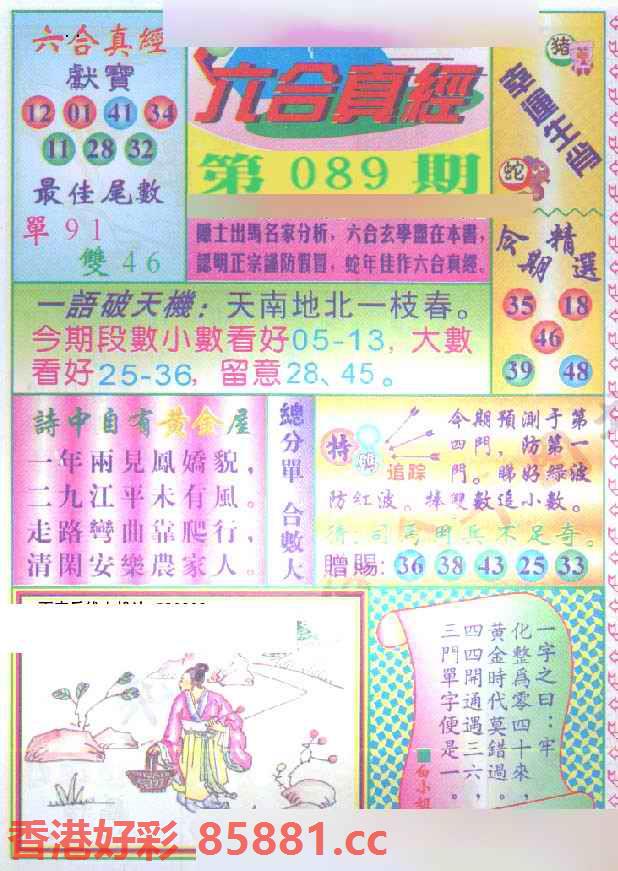 六合真經
獻寶
12 01 41 34
11 28 32
最佳尾數
單91
雙46
六合真經
第089期
隱士出馬名家分析，六合玄學盡在本書，
認明正宗謹防假冒，蛇年佳作六合真經。
豬
蛇
今期精選
35 18
46
39 48
一語破天機：天南地北一枝春。
今期段數小數看好05-13，大數
看好25-36，留意28、45。
詩中自有黃金屋
一年兩見鳳嬌貌，
二九江平未有風。
走路彎曲靠爬行，
清閑安樂農家人。
總分單 合數大
特碼
追踪
今期預測于第
四門，防第一
門。睇好綠波
防紅波。捧雙數追小數。
猜：司馬田兵不足奇。
贈賜：36 38 43 25 33
一字之曰：牢
化整爲零四十來，
黃金時代莫錯過。
四四開通遇三六，
三門單字便是一。
香港好彩 85881.cc